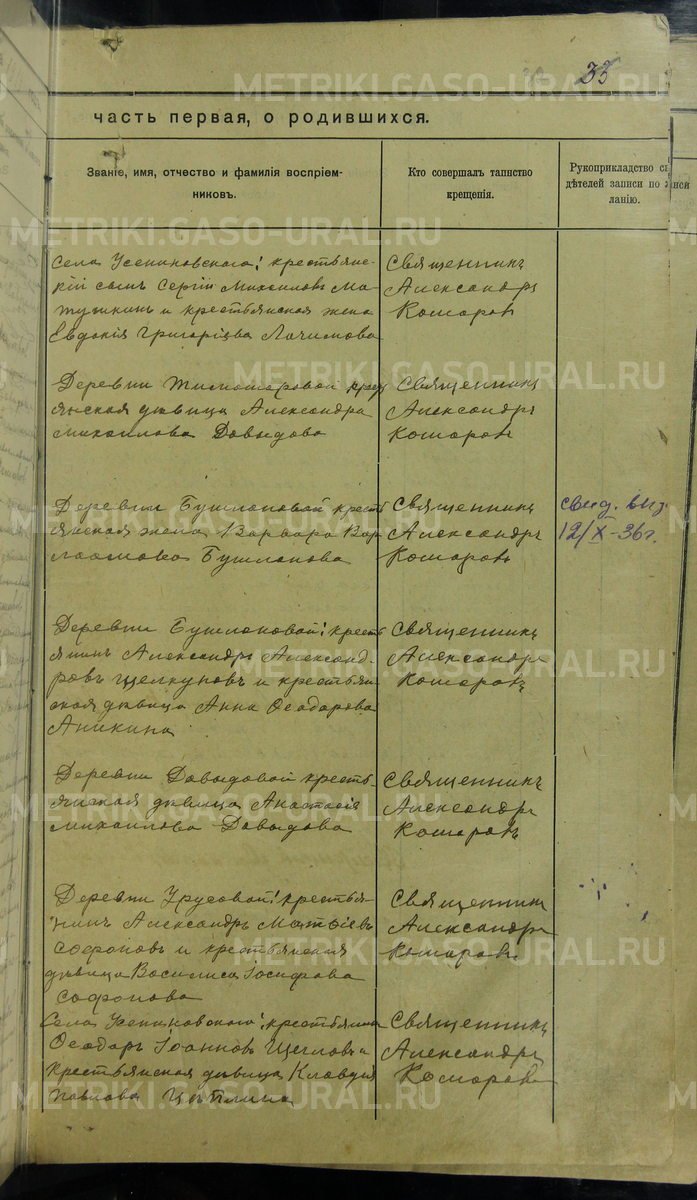 33
часть первая, о родившихся.
Званіе, имя, отчество и фамилія воспріем-
никовъ.
Кто совершалъ таинство
крещенія.
Рукоприкладство св
дѣтелей записи по
ланію.
Села Усениновскаго: крестьянс-
кій сынъ Сергій Михаиловъ Ма-
тушкинъ и крестьянская жена
Евдокія Григоріева Лачимова
Священникъ
Александръ
Комаровъ
Деревни крест
янская дѣвица Александра
Михаилова Давыдова
Священникъ
Александръ
Комаровъ
Деревни Бушлановой крест
янская жена Варвара Вар
лаамова Бушланова
Священникъ
Александръ
Комаровъ
свид. выд.
12/X-36г.
Деревни Бушлановой: кресть
янинъ Александръ Александ-
ровъ Щелкуновъ и крестьян
ская дѣвица Анна Ѳеодорова
Аникина
Священникъ
Александръ
Комаровъ
Деревни Давыдовой кресть-
янская дѣвица Анастасія
Михаилова Давыдова
Священникъ
Александръ
Комаровъ
Деревни Урусовой: крестья-
нинъ Александръ Матѳіевъ
Софоновъ и крестьянская
дѣвица Василиса Іосифова
Софонова
Священникъ
Александръ
Комаровъ
Села Усениновскаго: крестьянинъ
Ѳеодоръ Іоанновъ Щегловъ и
крестьянская дѣвица Клавдія
Павлова Цѣплина
Священникъ
Александръ
Комаровъ
METRIKI.GASO-URAL.RU